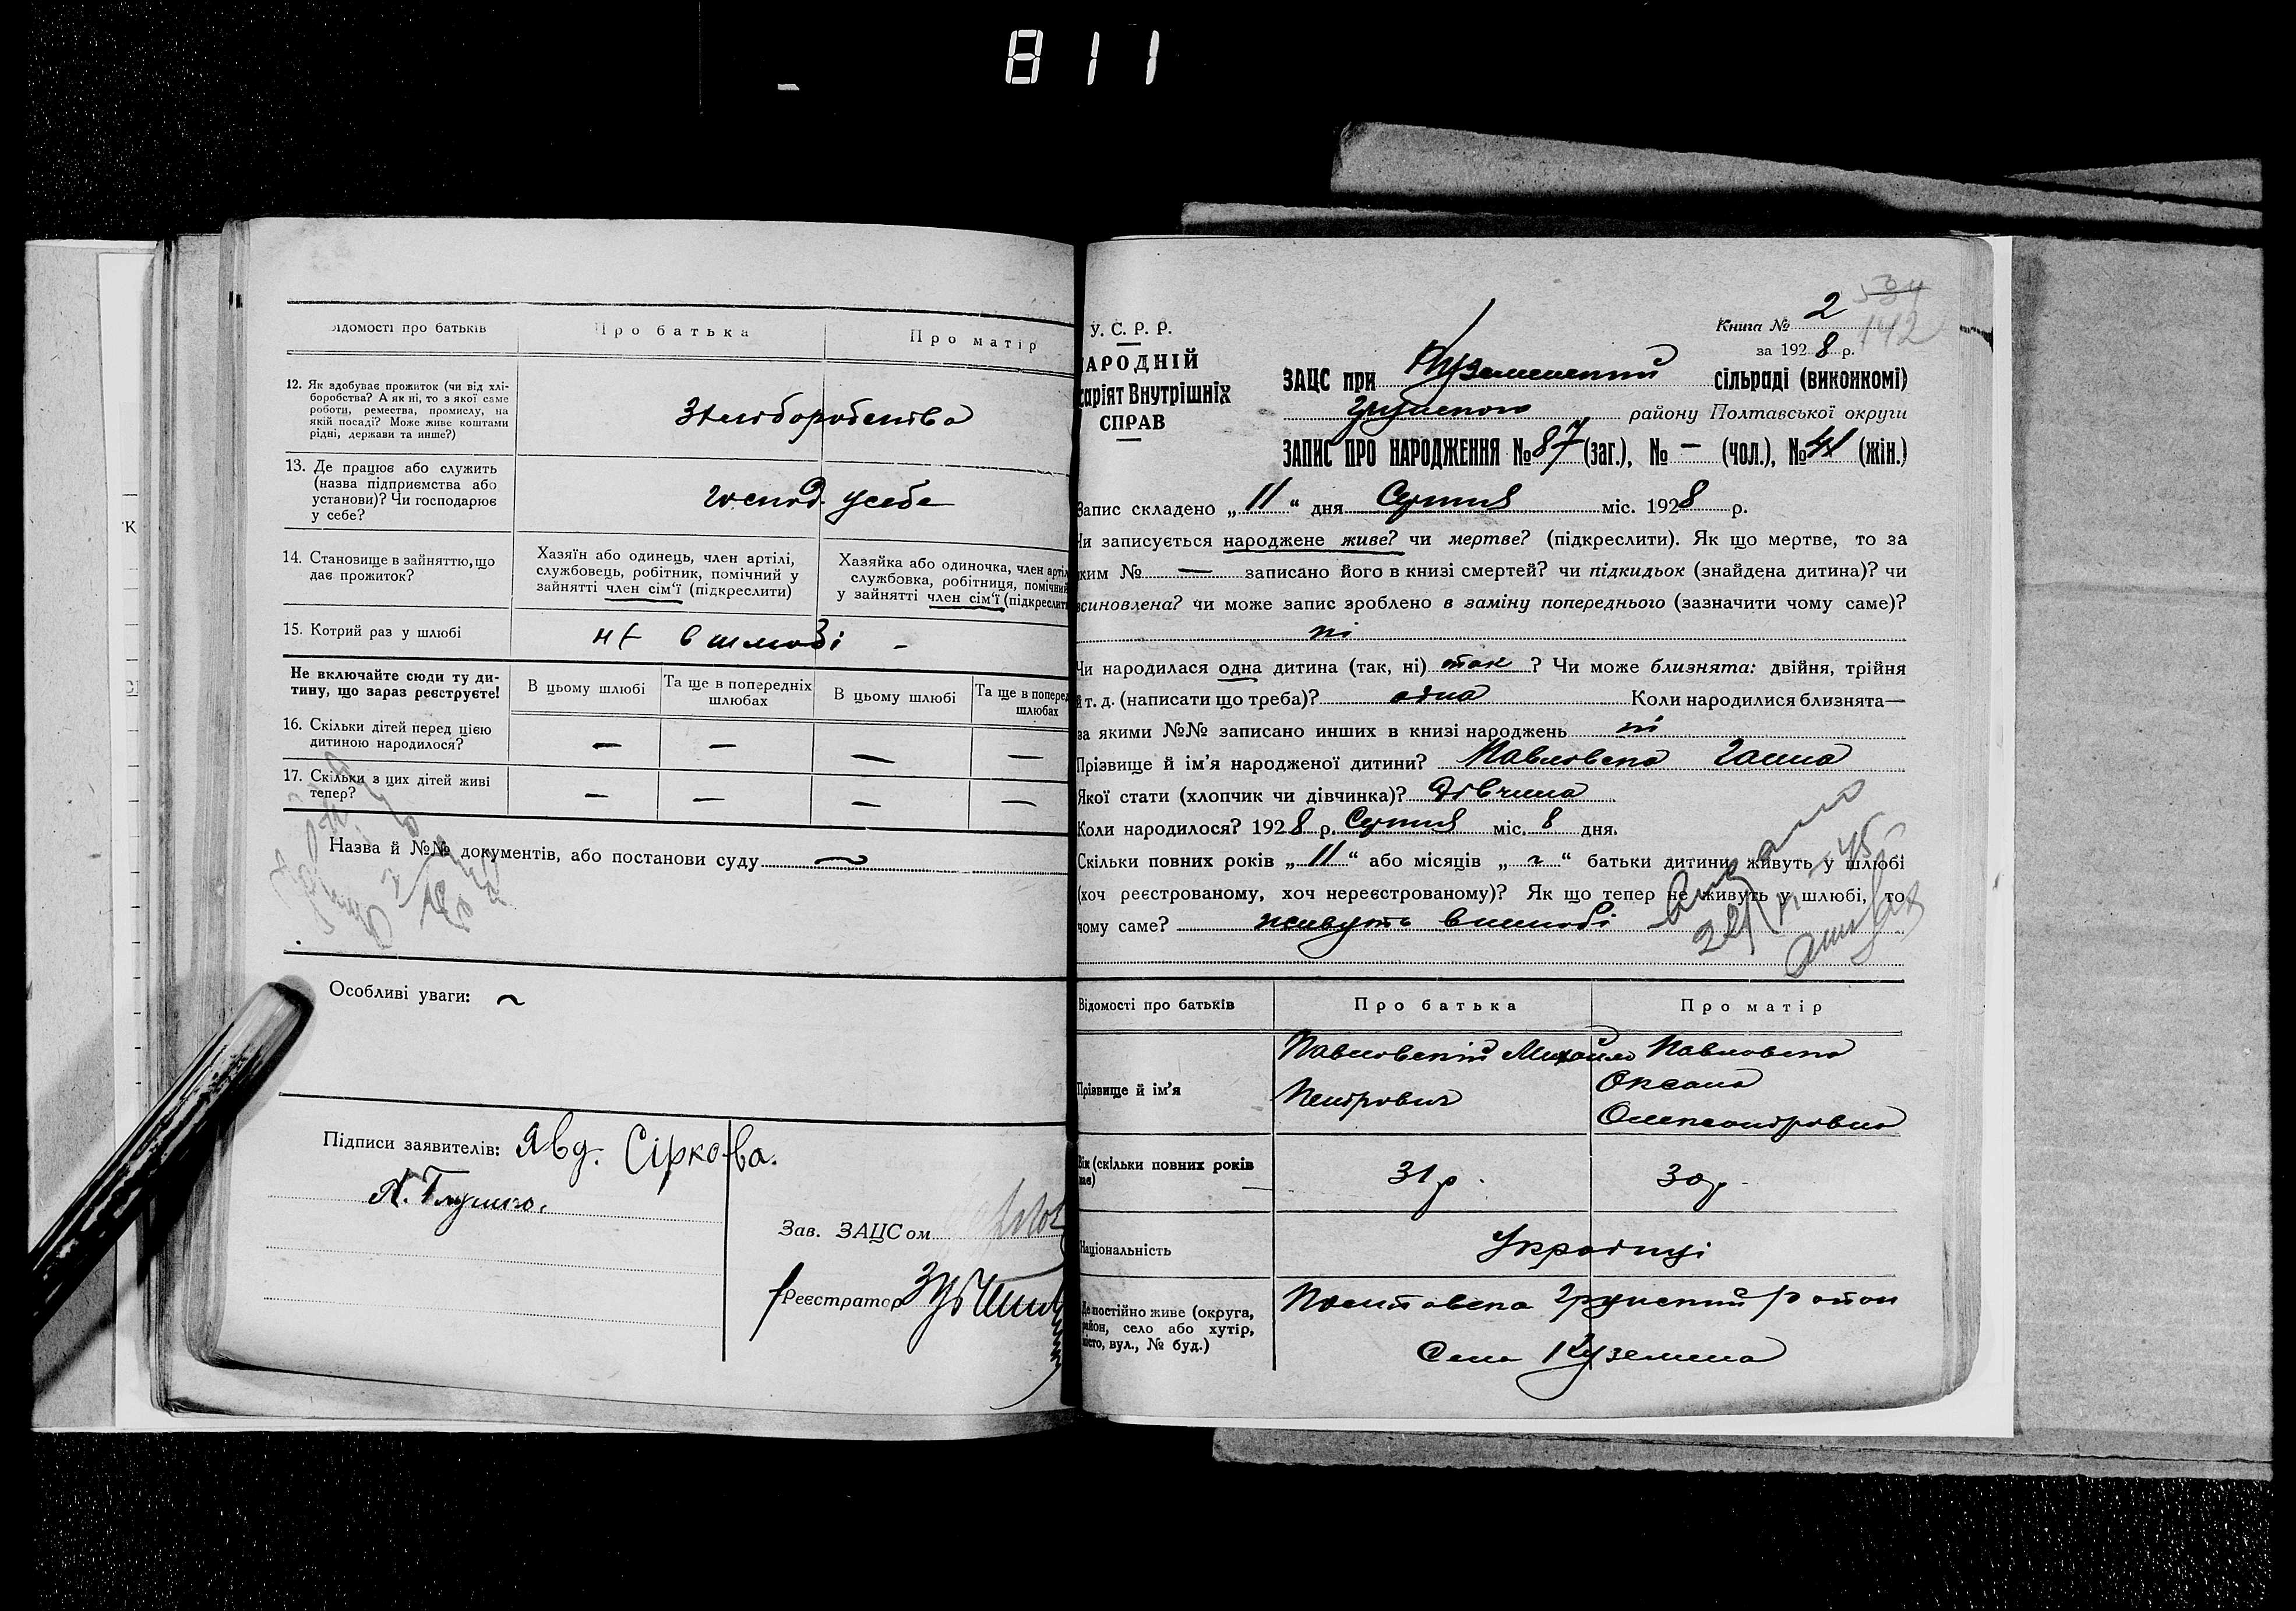 811
Відомості про батьків
Про батька
Про матір
12. Як здобуває прожиток (чи від хлі-
боробства? А як ні, то з якої саме
роботи, ремества, промислу, на
якій посаді? Може живе коштами
рідні, держави та инше?)
З хліборобства
13. Де працює або служить
(назва підприємства або
установи)? Чи господарює
у себе?
господ. у себе
14. Становище в зайняттю, що
дає прожиток?
Хазяїн або одинець, член артілі,
службовець, робітник, помічний у
зайнятті член сім'ї (підкреслити)
Хазяйка або одиночка, член артіл
службовка, робітниця, помічний
у зайнятті член сім'ї (підкреслит
15. Котрий раз у шлюбі
не в шлюбі -
Не включайте сюди ту ди-
тину, що зараз реєструєте!
В цьому шлюбі
Та ще в попередніх
шлюбах
В цьому шлюбі
Та ще в поперед
шлюбах
16. Скільки дітей перед цією
дитиною народилося?
— — — —
17. Скільки з цих дітей живі
тепер?
— — — —
Назва й №№ документів, або постанови суду
Особливі уваги: ~
Підписи заявителів: Явд. Сіркова.
Зав. ЗАЦСом
Реєстратор
2
534
142
У. С. Р. Р.
Книга №
за 1928 р.
АРОДНІЙ
саріят Внутрішніх
СПРАВ
ЗАЦС при Куземенській сільраді (виконкомі)
Грунського району Полтавської округи
ЗАПИС ПРО НАРОДЖЕННЯ № 87 (заг.), № — (чол.), № 41 (жін.)
Запис складено „11“ дня Серпня міс. 1928 р.
Чи записується народжене живе? чи мертве? (підкреслити). Як що мертве, то за
яким № — записано його в книзі смертей? чи підкидьок (знайдена дитина)? чи
всиновлена? чи може запис зроблено в заміну попереднього (зазначити чому саме)?
ні
Чи народилася одна дитина (так, ні) так ? Чи може близнята: двійня, трійня
й т. д. (написати що треба)? одна Коли народилися близнята—
за якими №№ записано инших в книзі народжень ні
Прізвище й ім'я народженої дитини? Павловська Ганна
Якої стати (хлопчик чи дівчинка)? Дівчина
Коли народилося? 1928 р. Серпня міс. 8 дня.
Скільки повних років „11“ або місяців „ “ батьки дитини живуть у шлюбі
(хоч реєстрованому, хоч нереєстрованому)? Як що тепер не живуть у шлюбі, то
чому саме? живуть в шлюбі
Відомості про батьків
Про батька
Про матір
Прізвище й ім'я
Павловський Михайло
Петрович
Павловська
Оксана
Олександровна
Вік (скільки повних років
має)
31 р.
30 р.
Національність
Українці
Де постійно живе (округа,
район, село або хутір,
місто, вул., № буд.)
Полтавська Грунський район
Село Куземена